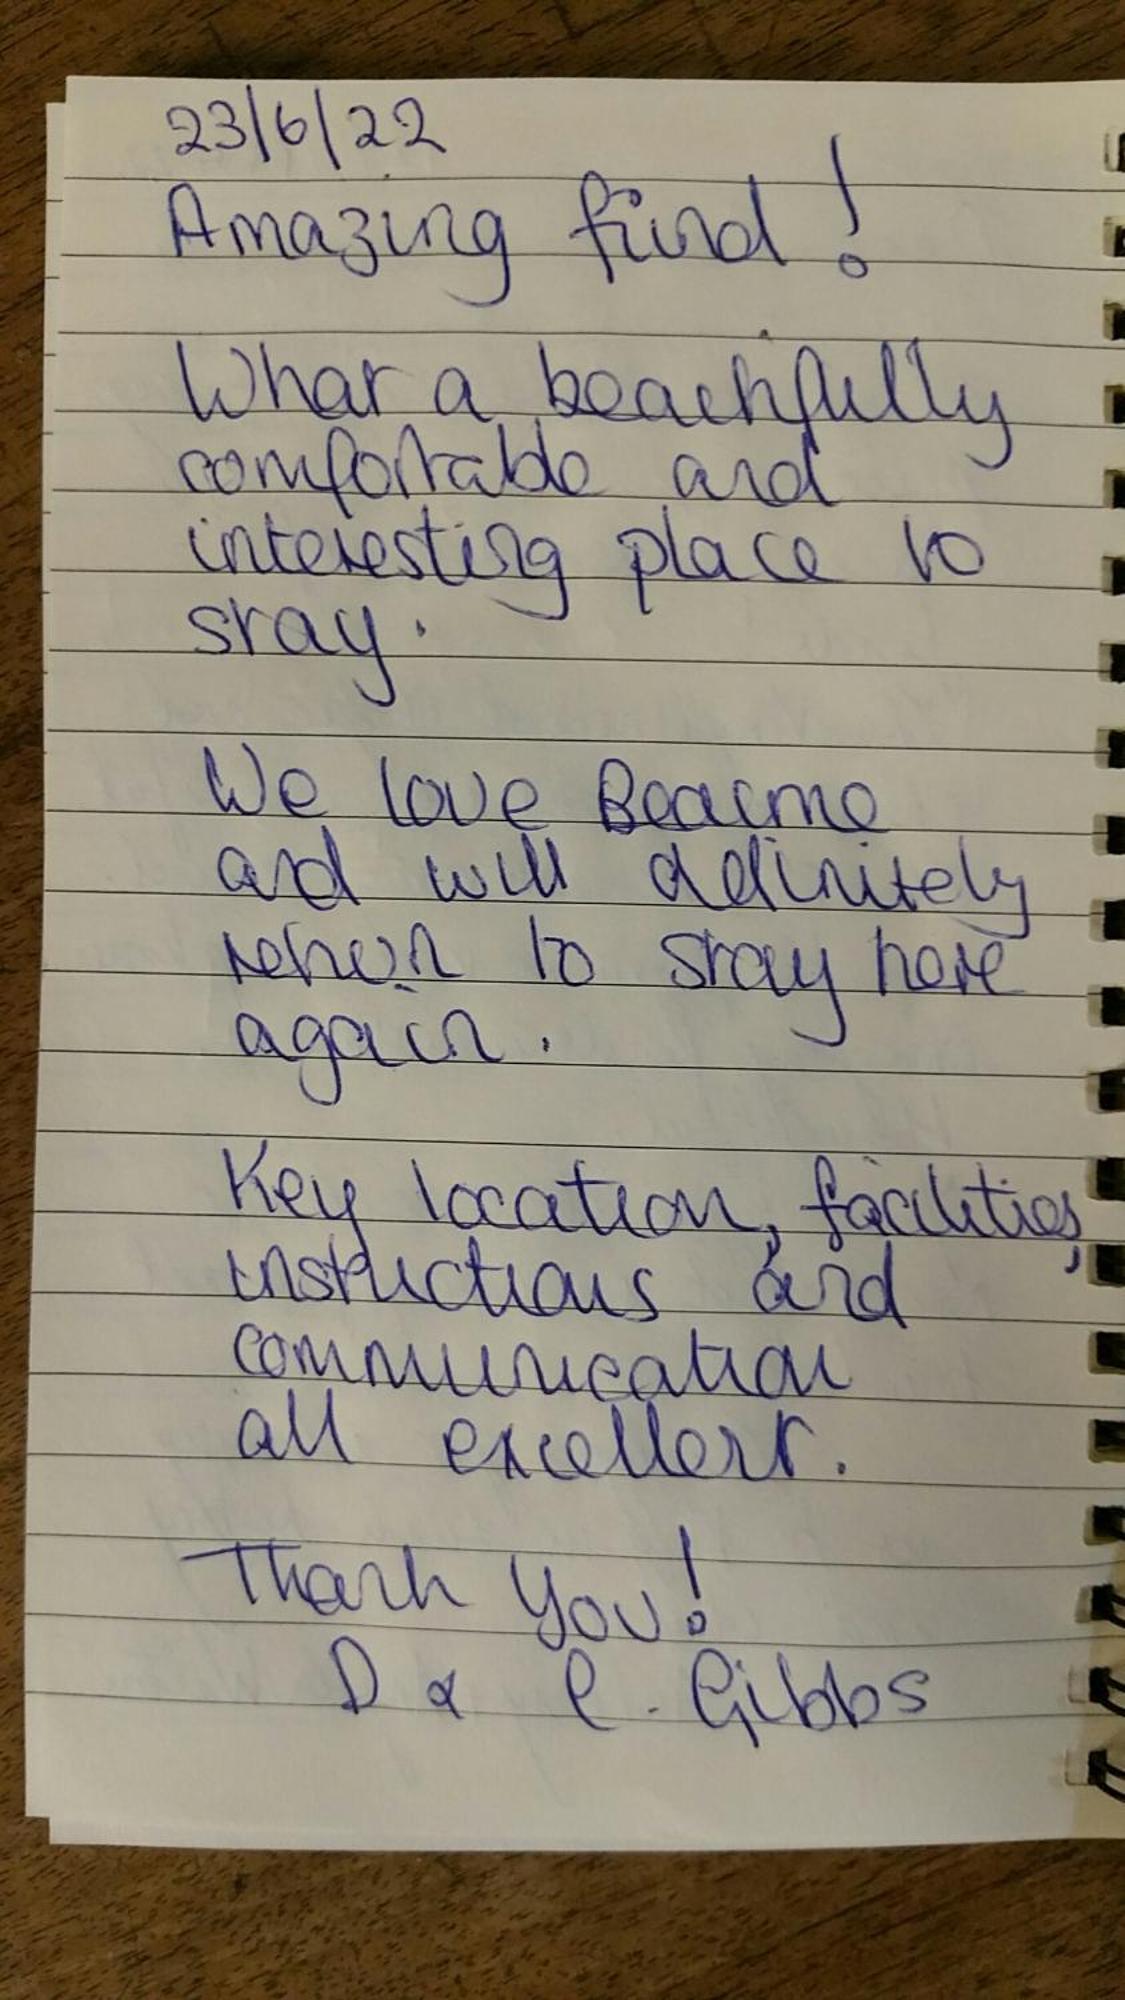 23/6/22
Amazing find!
What a beautifully
comfortable and
interesting place to
stay.
We love Beadme
and will definitely
return to stay here
again.
Key location, facilities,
instructions and
communication
all excellent.
Thank you!
D & C. Gibbs